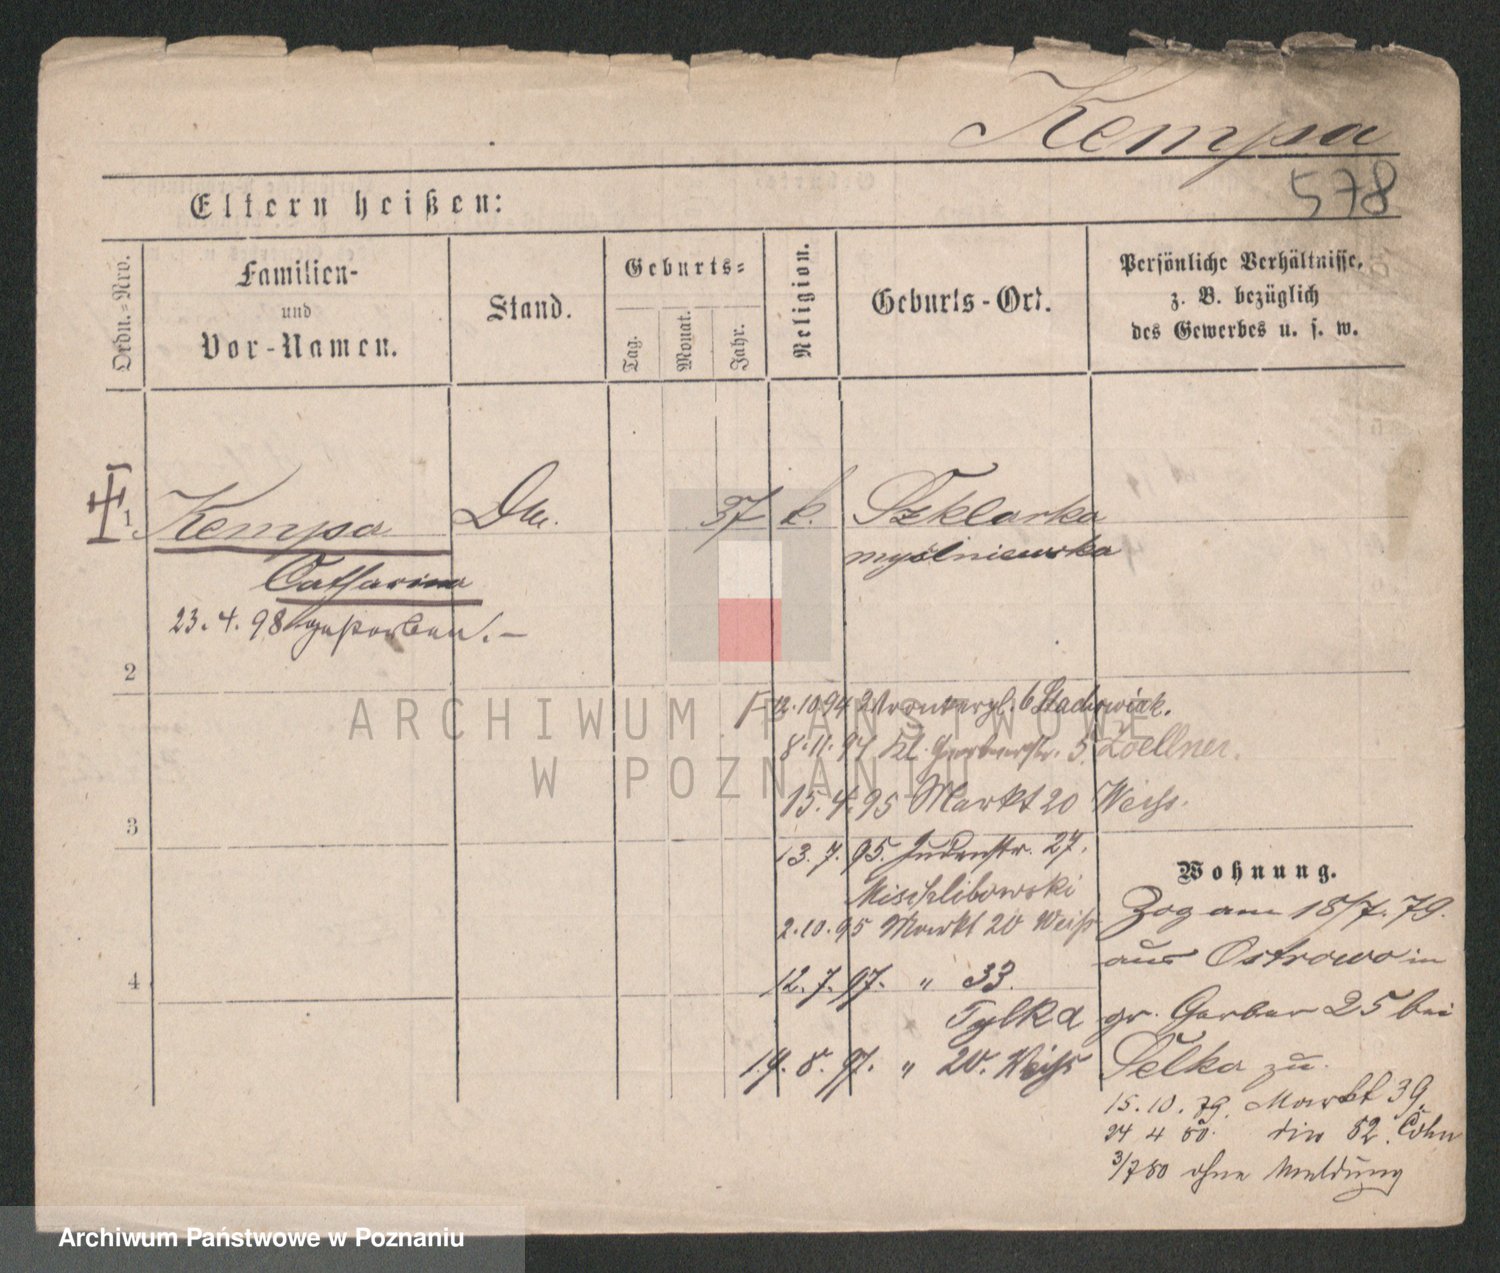 Kempa
578
Eltern heißen:
Ordn.-Nro.
Familien-
und
Vor-Namen.
Stand.
Geburts-
Tag.
Monat.
Jahr.
Religion.
Geburts-Ort.
Persönliche Verhältnisse,
z. B. bezüglich
des Gewerbes u. s. w.
1. Kempa 37 k. Szklarka
Catharina myślniewska
23. 4. 98 gestorben. –
2
12.10.94 6 Stachowiak.
8.11.94 kl. Gerberstr. 5. Zoellner.
15.4.95 Markt 20 Weiss.
3
13.7.95. Judenstr. 27.
Mischlibowski
2.10.95 Markt 20 Weiss
4
12.7.97. " 33.
Tylka
19.8.97. " 20. Weiss
Wohnung.
Zog am 18/7.79.
aus Ostrowo in
gr. Gerber 25 bei
Selka zu.
15.10.79. Markt 39.
24 4 80. dio 52. Cohn
3/7 80 ohne Meldung
ARCHIWUM PAŃSTWOWE
W POZNANIU
Archiwum Państwowe w Poznaniu